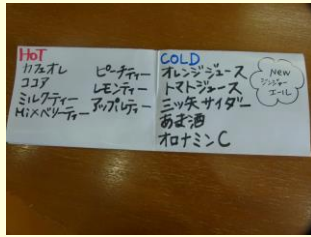 HOT
カフェオレ
ココア
ミルクティー
Mixベリーティー
ピーチティー
レモンティー
アップルティー
COLD
オレンジジュース
トマトジュース
三ツ矢サイダー
あま酒
オロナミンC
New
ジンジャー
エール